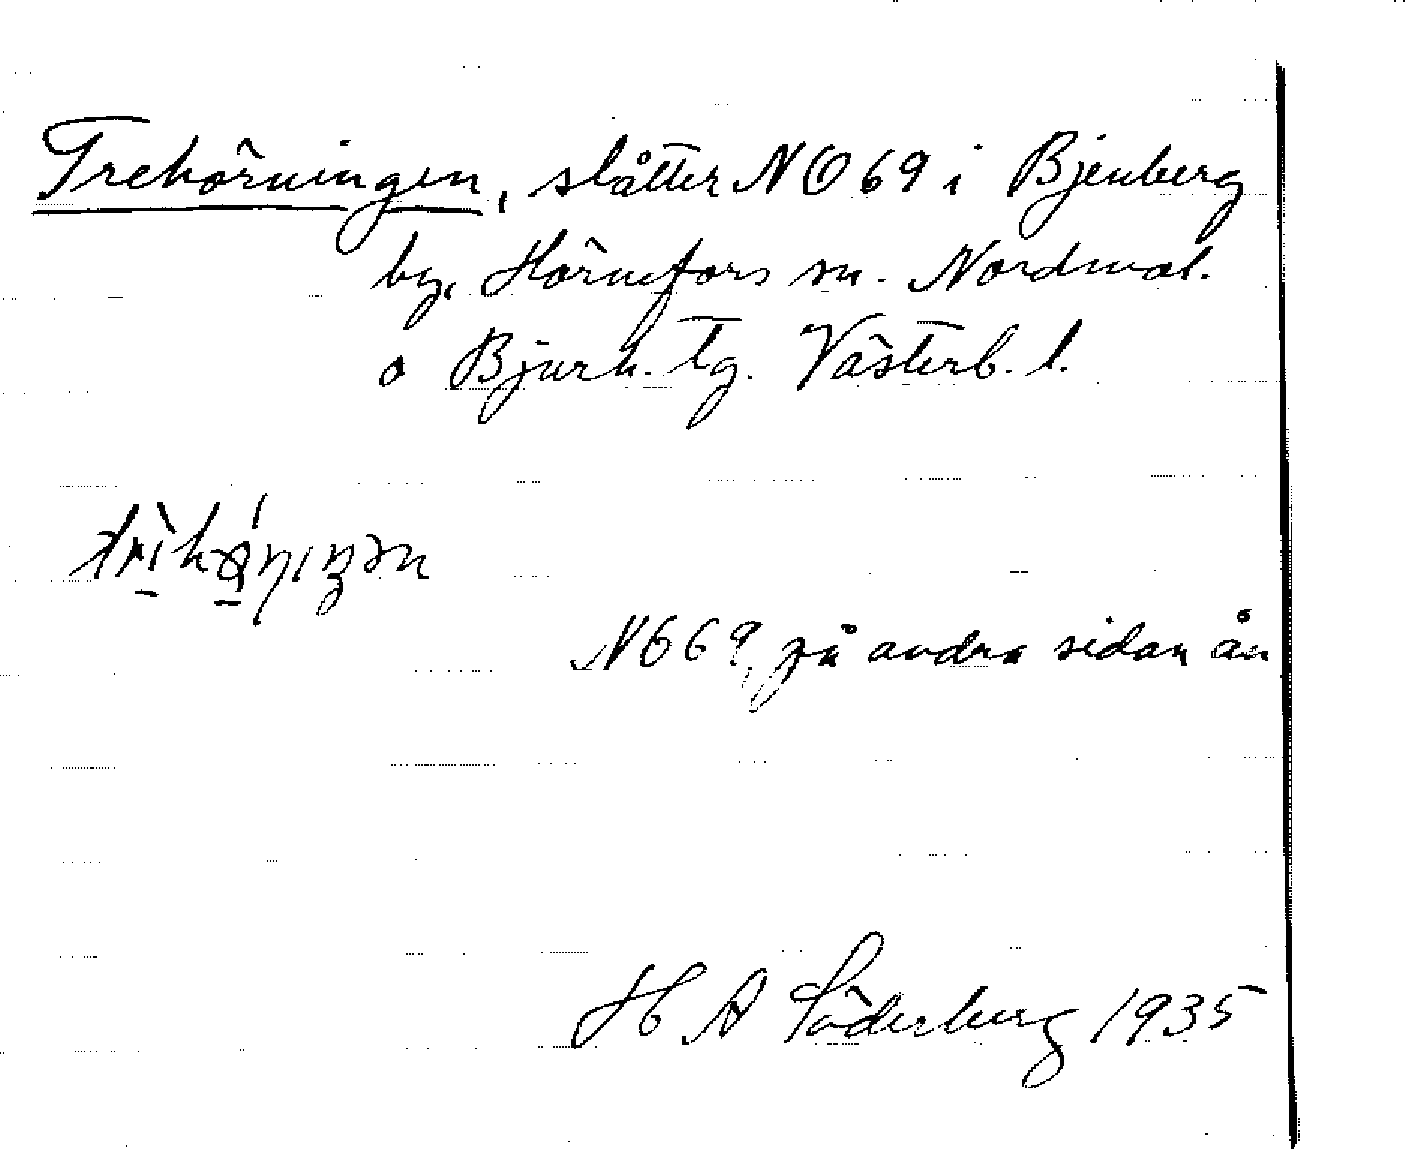 Trehörningen, slåtter NO 69 i Bjenberg
by, Hörnefors sn. Nordmal.
o Bjurh. tg. Västerb. l.
NO 69, på andra sidan ån
H A Söderberg 1935